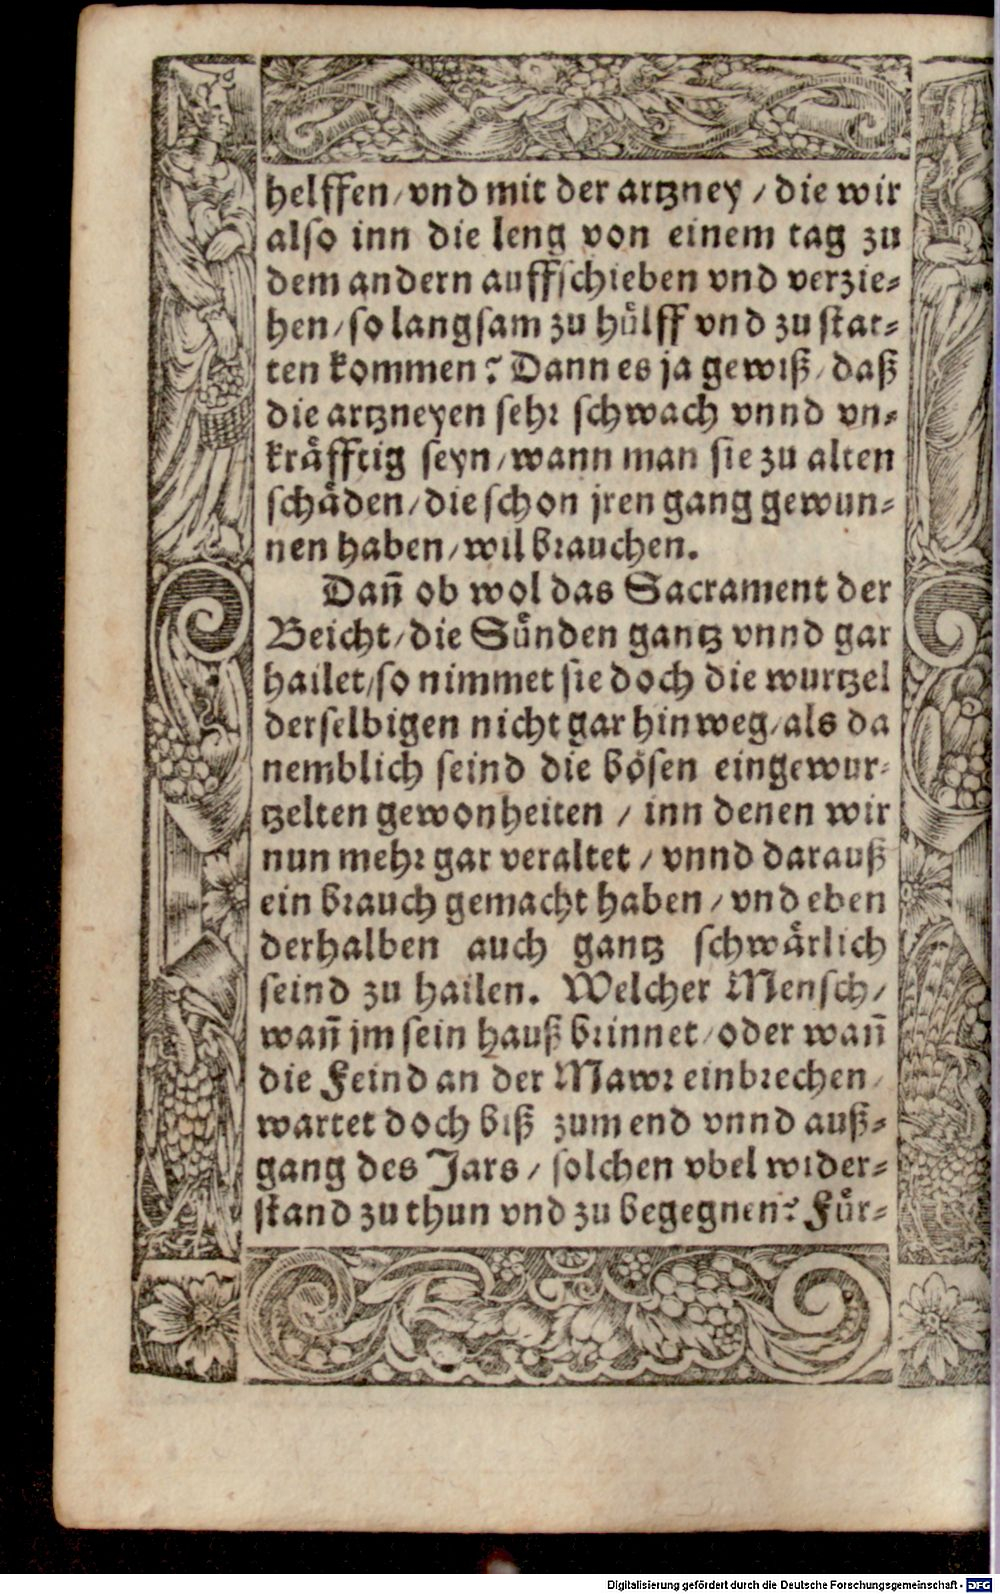 helffen/vnd mit der artzney / die wir
also inn die leng von einem tag zu
dem andern auffschieben vnd verzie-
hen/so langsam zu hülff vnd zu stat-
ten kommen? Dann es ja gewiß/daß
die artzneyen sehr schwach vnnd vn-
kräfftig seyn/wann man sie zu alten
schäden/die schon jren gang gewun-
nen haben/wil brauchen.
Dañ ob wol das Sacrament der
Beicht/die Sünden gantz vnnd gar
hailet/so nimmet sie doch die wurtzel
derselbigen nicht gar hinweg/als da
nemblich seind die bösen eingewur-
tzelten gewonheiten / inn denen wir
nun mehr gar veraltet / vnnd darauß
ein brauch gemacht haben / vnd eben
derhalben auch gantz schwärlich
seind zu hailen. Welcher Mensch/
wañ jm sein hauß brinnet/oder wañ
die Feind an der Mawr einbrechen/
wartet doch biß zum end vnnd auß-
gang des Jars / solchen vbel wider-
stand zu thun vnd zu begegnen? Für-
Digitalisierung gefördert durch die Deutsche Forschungsgemeinschaft - DFG